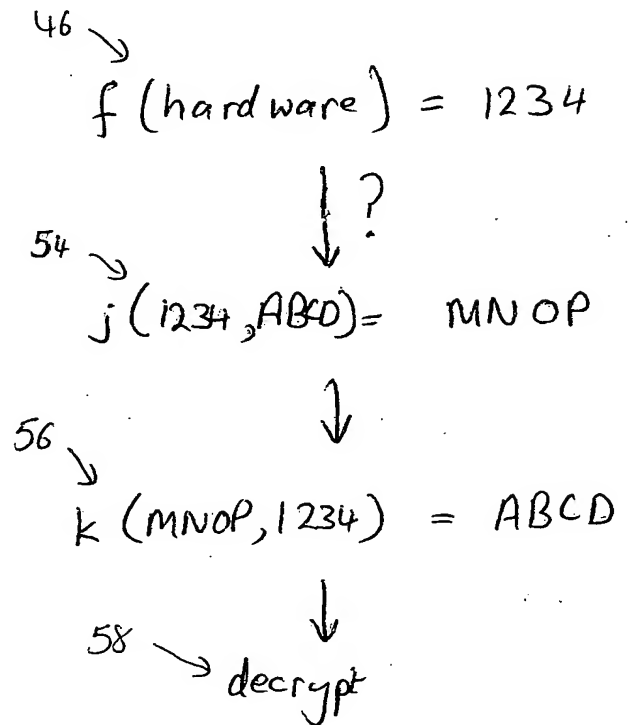 46
f (hardware) = 1234
?
54
j (1234, ABCD) = MNOP
56
k (MNOP, 1234) = ABCD
58
decrypt